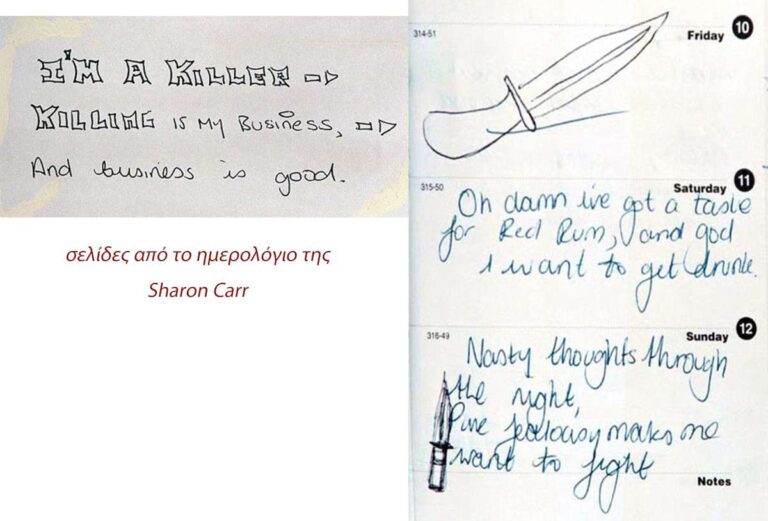 I'M A KILLER
KILLING IS MY BUSINESS,
And business is good.
σελίδες από το ημερολόγιο της
Sharon Carr
314-51
Friday 10
315-50
Saturday 11
Oh damn ive got a taste
for Red Rum, and god
I want to get drunk.
316-49
Sunday 12
Nasty thoughts through
the night,
Pure jealousy makes me
want to fight
Notes